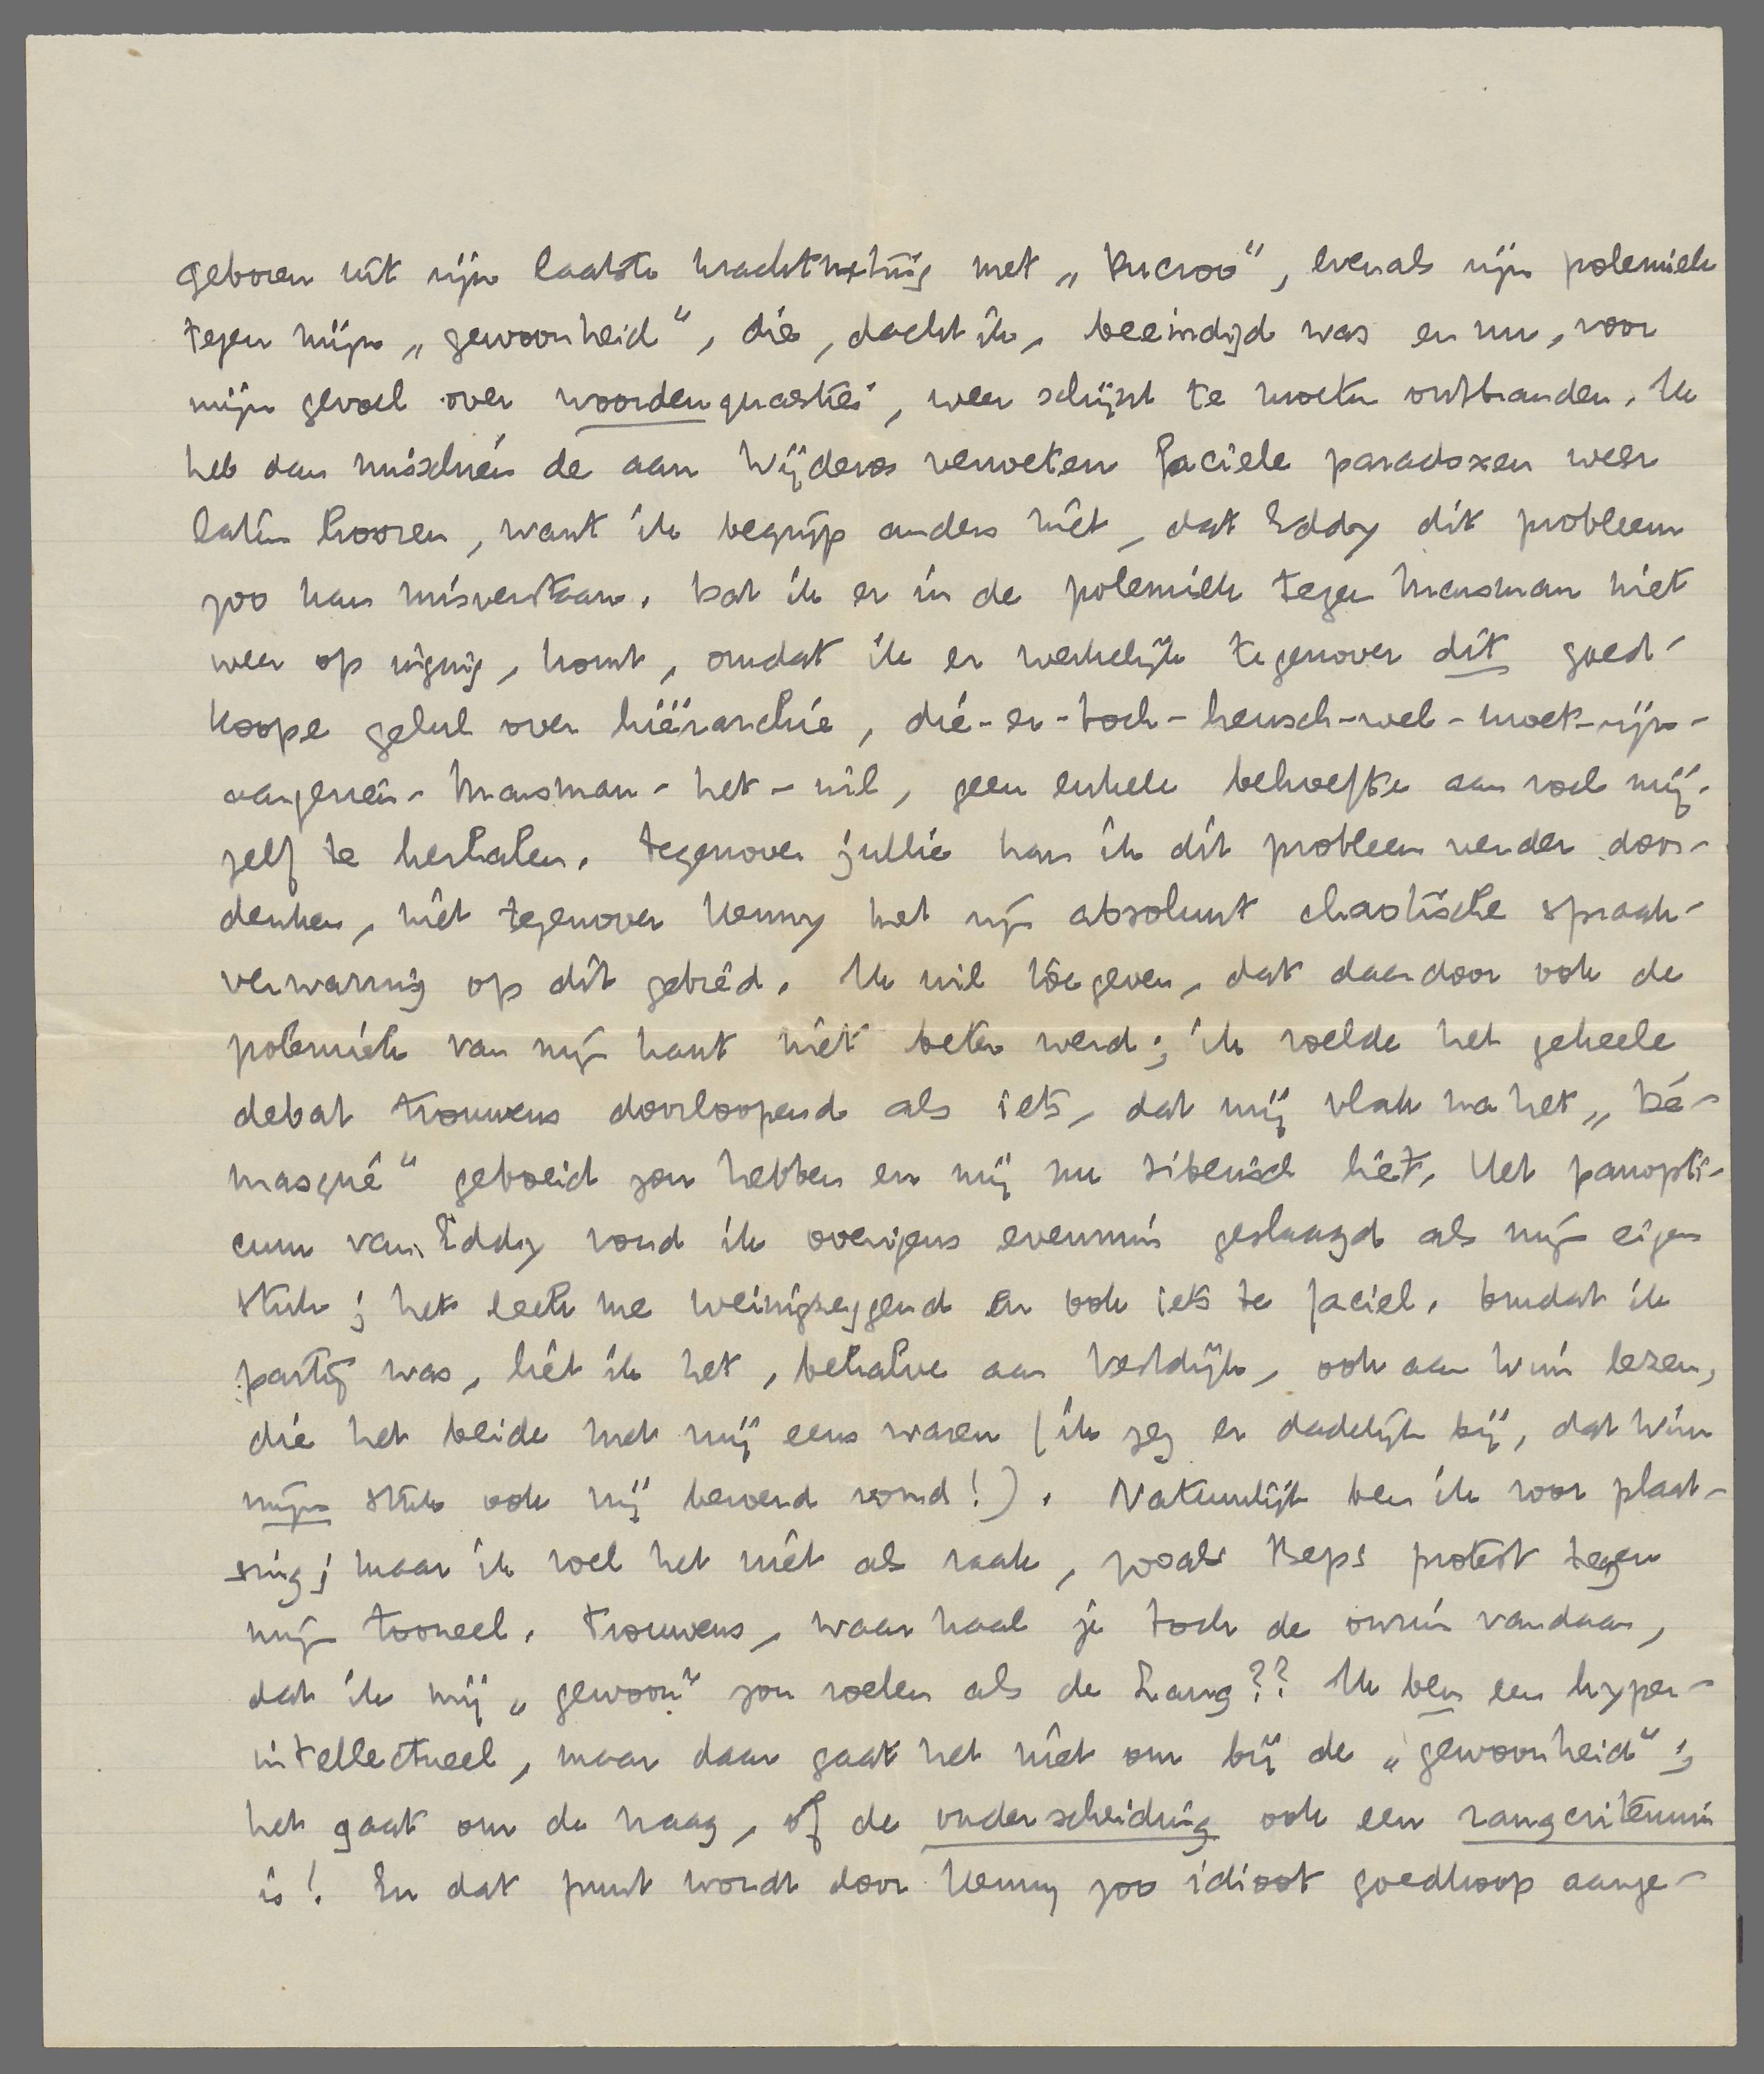 geboren uit zijn laatste krachtmeting met „Ducroo", evenals zijn polemiek
tegen mijn „gewoonheid", die, dacht ik, beëindigd was en nu, voor
mijn gevoel over woordenquaesties, weer schijnt te moeten ontbranden. Ik
heb dan misschien de aan Wijderos verweten faciele paradoxen weer
laten hooren, want ik begrijp anders niet, dat Eddy dit probleem
zoo kan misverstaan. Dat ik er in de polemiek tegen Marsman niet
weer op inging, komt, omdat ik er werkelijk tegenover dit goed-
koope gelul over hiërarchie, die-er-toch-heusch-wel-moet-zijn-
aangezien-Marsman-het-wil, geen enkele behoefte aan voel mij-
zelf te herhalen. Tegenover jullie kan ik dit probleem verder door-
denken, niet tegenover Henny met zijn absoluut chaotische spraak-
verwarring op dit gebied. Ik wil toegeven, dat daardoor ook de
polemiek van mijn kant niet beter werd; ik voelde het geheele
debat trouwens doorloopend als iets, dat mij vlak na het „Dé-
masqué" geboeid zou hebben en mij nu siberisch liet. Het panopti-
cum van Eddy vond ik overigens evenmin geslaagd als mijn eigen
stuk; het leek me weinigzeggend en ook iets te faciel. Omdat ik
partij was, liet ik het, behalve aan Vestdijk, ook aan Wim lezen,
die het beide met mij eens waren (ik zeg er dadelijk bij, dat Wim
mijn stuk ook mij benend vond!). Natuurlijk ben ik voor plaat-
sing; maar ik voel het niet als raak, zooals Beps protest tegen
mijn tooneel. Trouwens, waar haal je toch de onzin vandaan,
dat ik mij „gewoon" zou voelen als de Lang?? Ik ben een hyper-
intellectueel, maar daar gaat het niet om bij de „gewoonheid";
het gaat om de vraag, of de onderscheiding ook een rangcriterium
is! En dat punt wordt door Henny zoo idioot goedkoop aange-